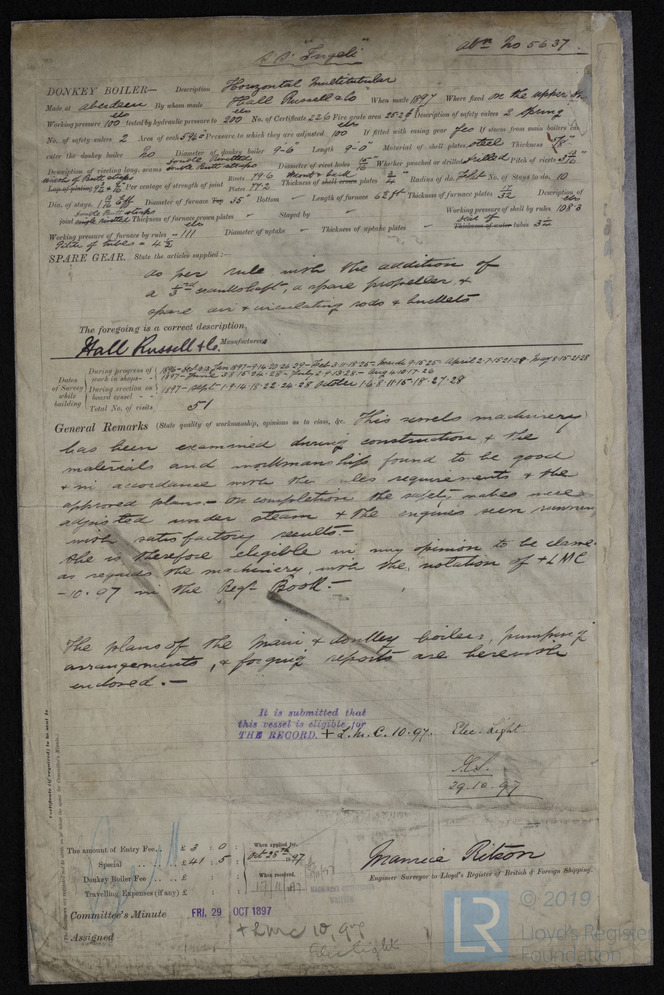 S.S. "Ingeli"
Abn No 5637
DONKEY BOILER— Description Horizontal Multitubular
Made at Aberdeen By whom made Hall Russell & Co When made 1897 Where fixed on the upper
Working pressure 100 tested by hydraulic pressure to 200 No. of Certificate 226 Fire grate area Description of safety valves 2 Spring
No. of safety valves 2 Area of each Pressure to which they are adjusted 100 If fitted with easing gear yes If steam from main boilers can
enter the donkey boiler No Diameter of donkey boiler 9-6" Length 9-0" Material of shell plates steel Thickness
Description of riveting long. seams Double Butt straps Diameter of rivet holes Whether punched or drilled drilled Pitch of rivets
Lap of plating Per centage of strength of joint Rivets 79.6 Plates 77.2 Thickness of Radius of do. flat No. of Stays to do. 10
Dia. of stays. Diameter of furnace 35" Bottom Length of furnace 62ft Thickness of furnace plates 17/32 Description of
joint Thickness of furnace crown plates Stayed by Working pressure of shell by rules 108.3
Working pressure of furnace by rules 111 Diameter of uptake Thickness of uptake plates Thickness of water tubes
Pitch of tubes = 4 1/2
SPARE GEAR. State the articles supplied :—
as per rule with the addition of
a 1/3rd crankshaft, a spare propeller, &
spare air & circulating rods & buckets
The foregoing is a correct description,
Hall Russell & Co. Manufacturers
Dates of Survey while building
During progress of work in shops - -
During erection on board vessel - - 1897 - Sept 1-9-14-18-22-24-28 October 1-6-8-11-15-18-27-28
Total No. of visits 51
General Remarks (State quality of workmanship, opinions as to class, &c. This vessels machinery
has been examined during construction & the
materials and workmanship found to be good
& in accordance with the rules requirements & the
approved plans.— On completion the safety valves were
adjusted under steam & the engines seen running
with satisfactory results.—
She is therefore eligible in my opinion to be classed
as regards the machinery with the notation of + LMC
-10.97 in the Regr Book.—
The plans of the main & donkey boilers, pumping
arrangements, & forging reports are herewith
enclosed.—
It is submitted that
this vessel is eligible for
THE RECORD. + L.M.C. 10.97. Elec. Light.
29.10.97
Certificate (if required) to be sent to
The amount of Entry Fee.. £ 3 : 0 : When applied for,
Special .. .. £ 41 : 5 : Oct 28th 1897
Donkey Boiler Fee .. £ : : When received,
Travelling Expenses (if any) £ : :
Maurice Ritson
Engineer Surveyor to Lloyd's Register of British & Foreign Shipping.
Committee's Minute FRI. 29 OCT 1897
Assigned + LMC 10.97
Elec Light
© 2019
LR
Lloyd's Register
Foundation